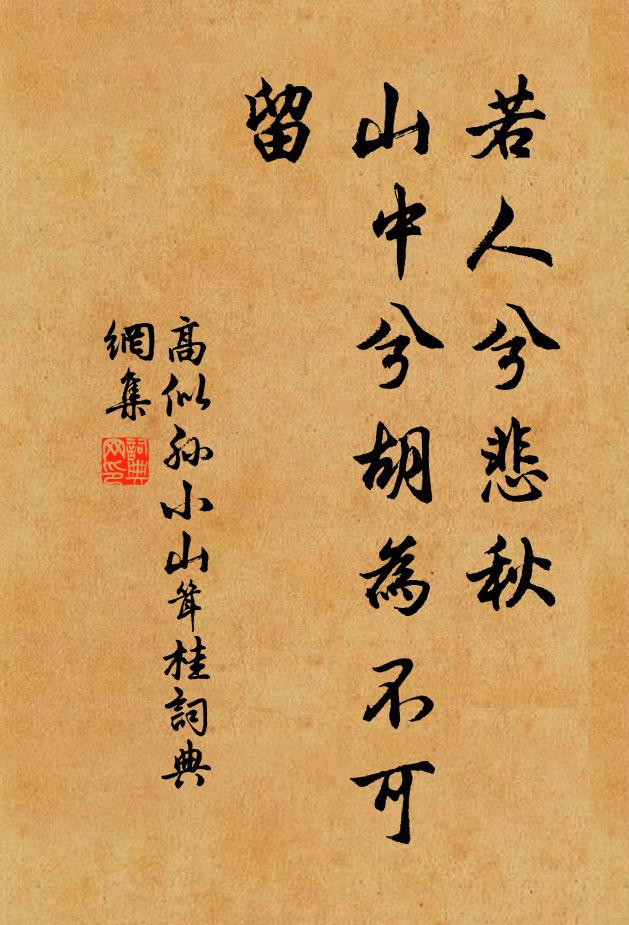 若人兮悲秋
山中兮胡為不可
留
高似孫小山叢桂詞典
網集
詞典
网印